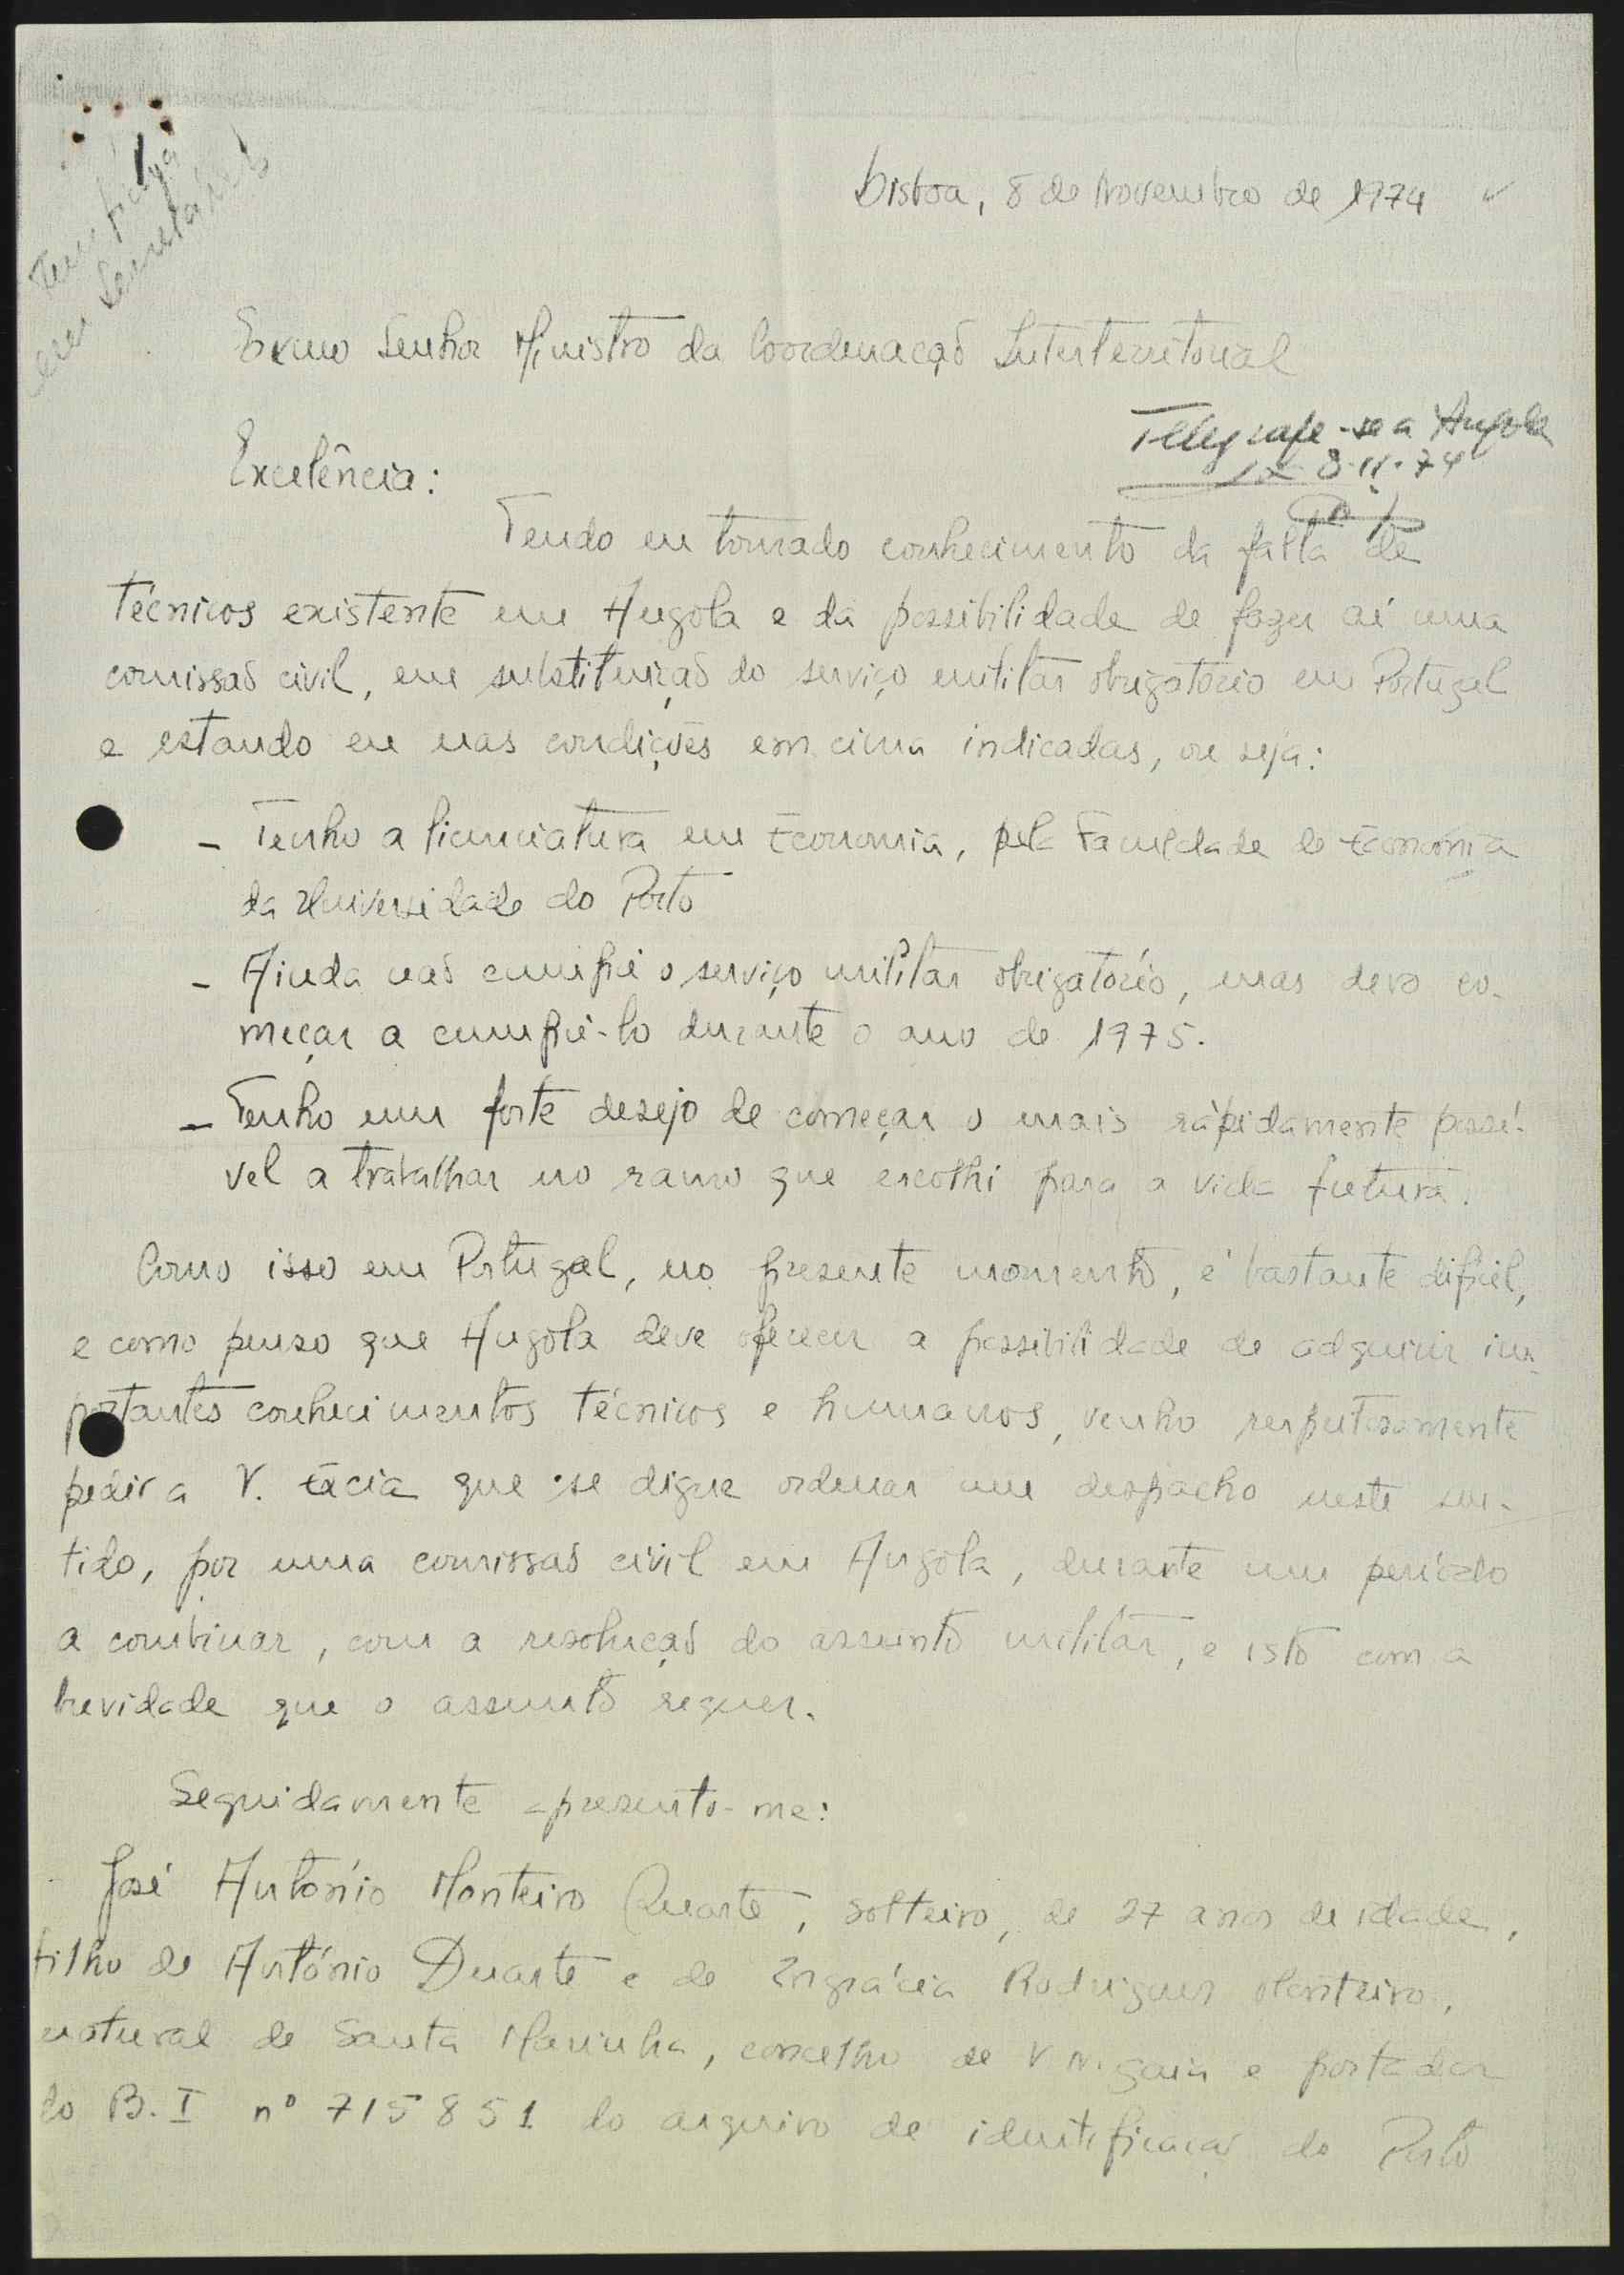 Tem ficha
em Secretariado
Lisboa, 8 de Novembro de 1974
Exmo Senhor Ministro da Coordenação Interterritorial
Telegrafe-se a Angola
8.11.74
Excelência:
Tendo eu tomado conhecimento da falta de
técnicos existente em Angola e da possibilidade de fazer aí uma
comissão civil, em substituição do serviço militar obrigatório em Portugal
e estando eu nas condições em cima indicadas, ou seja:
- Tenho a licenciatura em Economia, pela Faculdade de Economia
da Universidade do Porto
- Ainda não cumpri o serviço militar obrigatório, mas devo co-
meçar a cumpri-lo durante o ano de 1975.
- Tenho um forte desejo de começar o mais ràpidamente possí-
vel a trabalhar no ramo que escolhi para a vida futura.
Como isso em Portugal, no presente momento, é bastante difícil,
e como penso que Angola deve oferecer a possibilidade de adquirir im-
portantes conhecimentos técnicos e humanos, venho respeitosamente
pedir a V. Excia que se digne ordenar um despacho neste sen-
tido, por uma comissão civil em Angola, durante um período
a combinar, com a resolução do assunto militar, e isto com a
brevidade que o assunto requer.
Seguidamente apresento-me:
José António Monteiro Duarte, solteiro, de 27 anos de idade,
filho de António Duarte e de Engrácia Rodrigues Monteiro,
natural de Santa Marinha, concelho de V. N. Gaia e portador
do B. I nº 715851 do arquivo de identificação do Porto